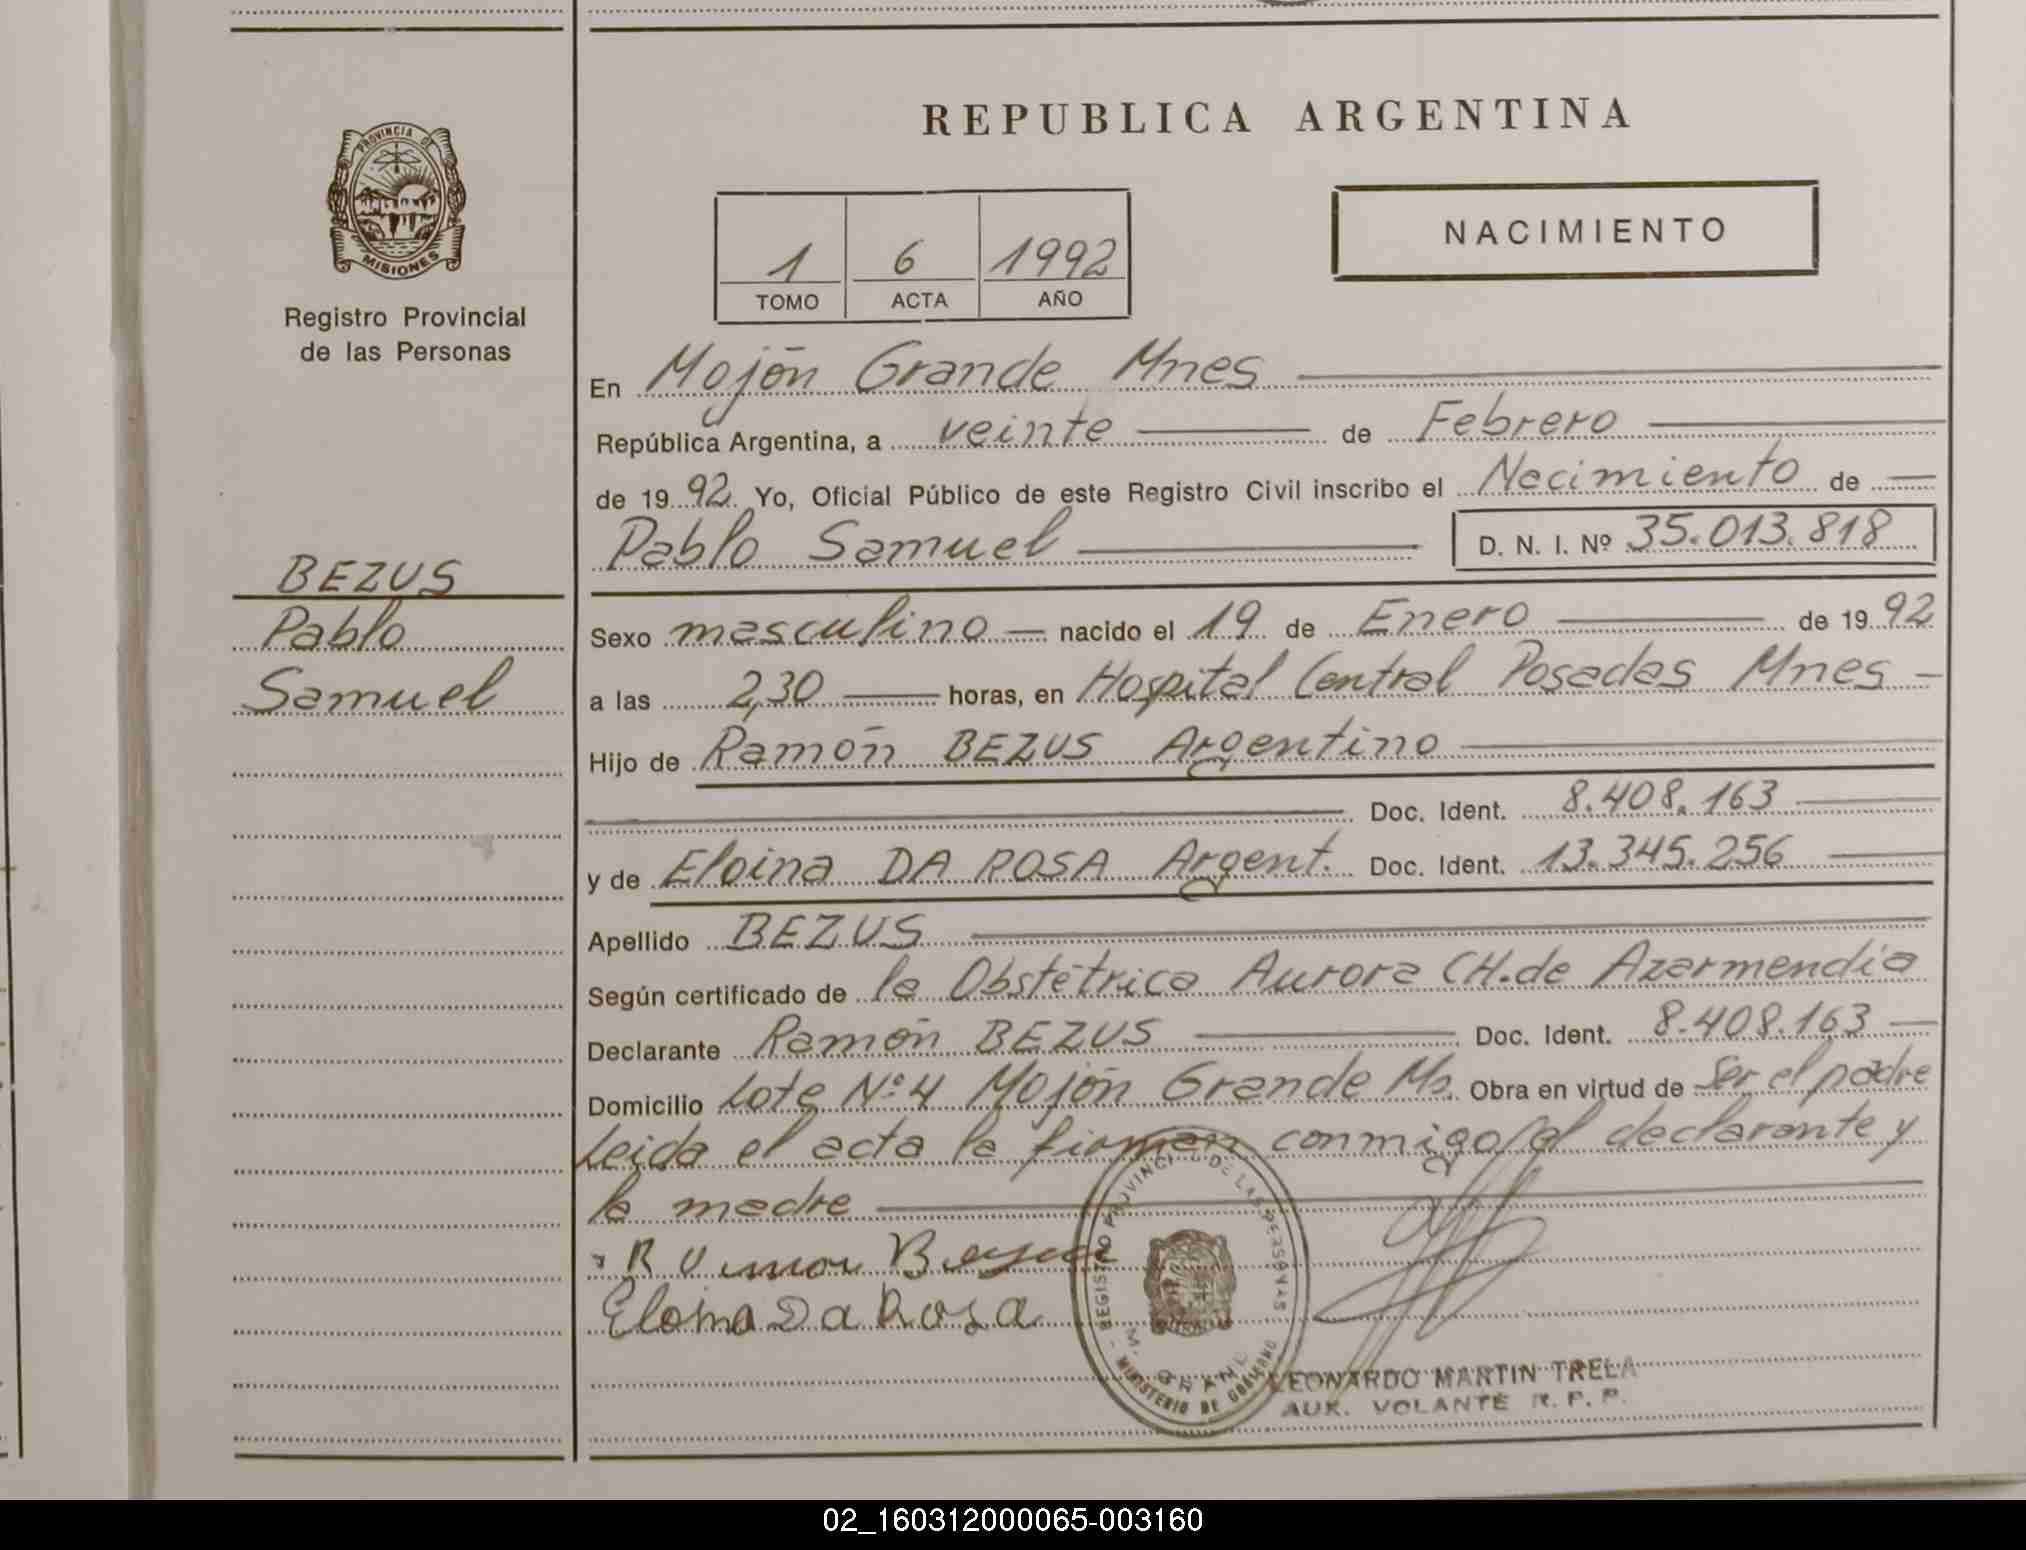 PROVINCIA DE
MISIONES
Registro Provincial
de las Personas
BEZUS
Pablo
Samuel
REPUBLICA ARGENTINA
1 6 1992
TOMO ACTA AÑO
NACIMIENTO
En Mojón Grande Mnes
República Argentina, a veinte de Febrero
de 1992. Yo, Oficial Público de este Registro Civil inscribo el Nacimiento de
Pablo Samuel D. N. I. Nº 35.013.818
Sexo masculino nacido el 19 de Enero de 1992
a las 2,30 horas, en Hospital Central Posadas Mnes
Hijo de Ramón BEZUS Argentino
Doc. Ident. 8.408.163
y de Eloina DA ROSA Argent. Doc. Ident. 13.345.256
Apellido BEZUS
Según certificado de la Obstétrica Aurora CH. de Azarmendia
Declarante Ramón BEZUS Doc. Ident. 8.408.163
Domicilio Lote Nº 4 Mojón Grande Ms. Obra en virtud de Ser el padre
Leida el acta la firman conmigo el declarante y
la madre
Eloina Da Rosa
REGISTRO PROVINCIAL DE LAS PERSONAS
MINISTERIO DE GOBIERNO
LEONARDO MARTIN TRELA
AUX. VOLANTE R. P. P.
02_160312000065-003160